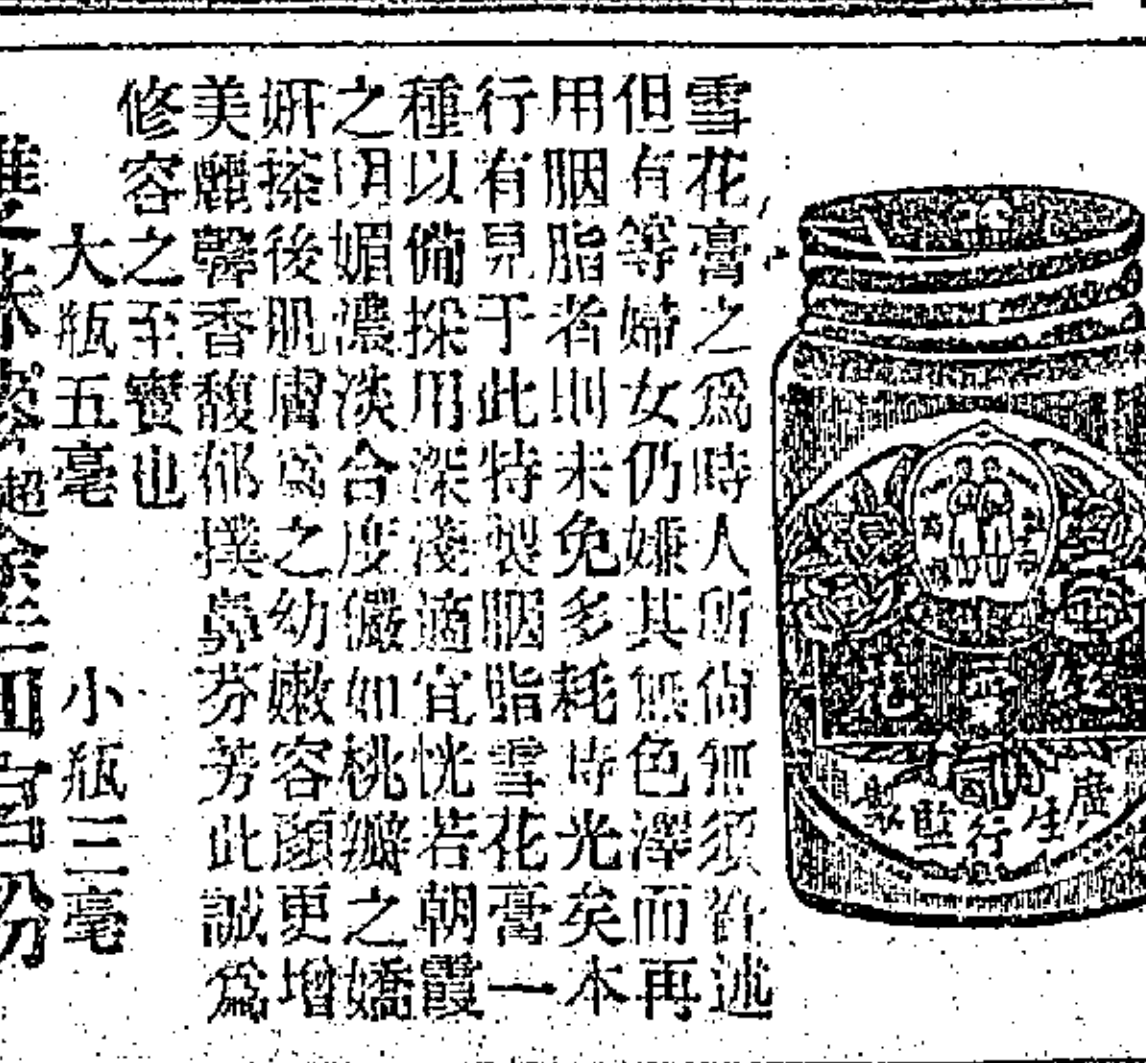 雪花膏之爲時人所尙無須贅述
但有等婦女仍嫌其無色澤而再
用胭脂者則未免多耗時光矣本
行有見于此特製胭脂雪花膏一
種以備採用深淺適宜恍若朝霞
之明媚濃淡合度儼如桃瓣之嬌
妍搽後肌膚爲之幼嫩容顏更增
美麗馨香馥郁撲鼻芬芳此誠爲
修容之至寶也
大瓶五毫 小瓶三毫
紅雪花
廣生行監製